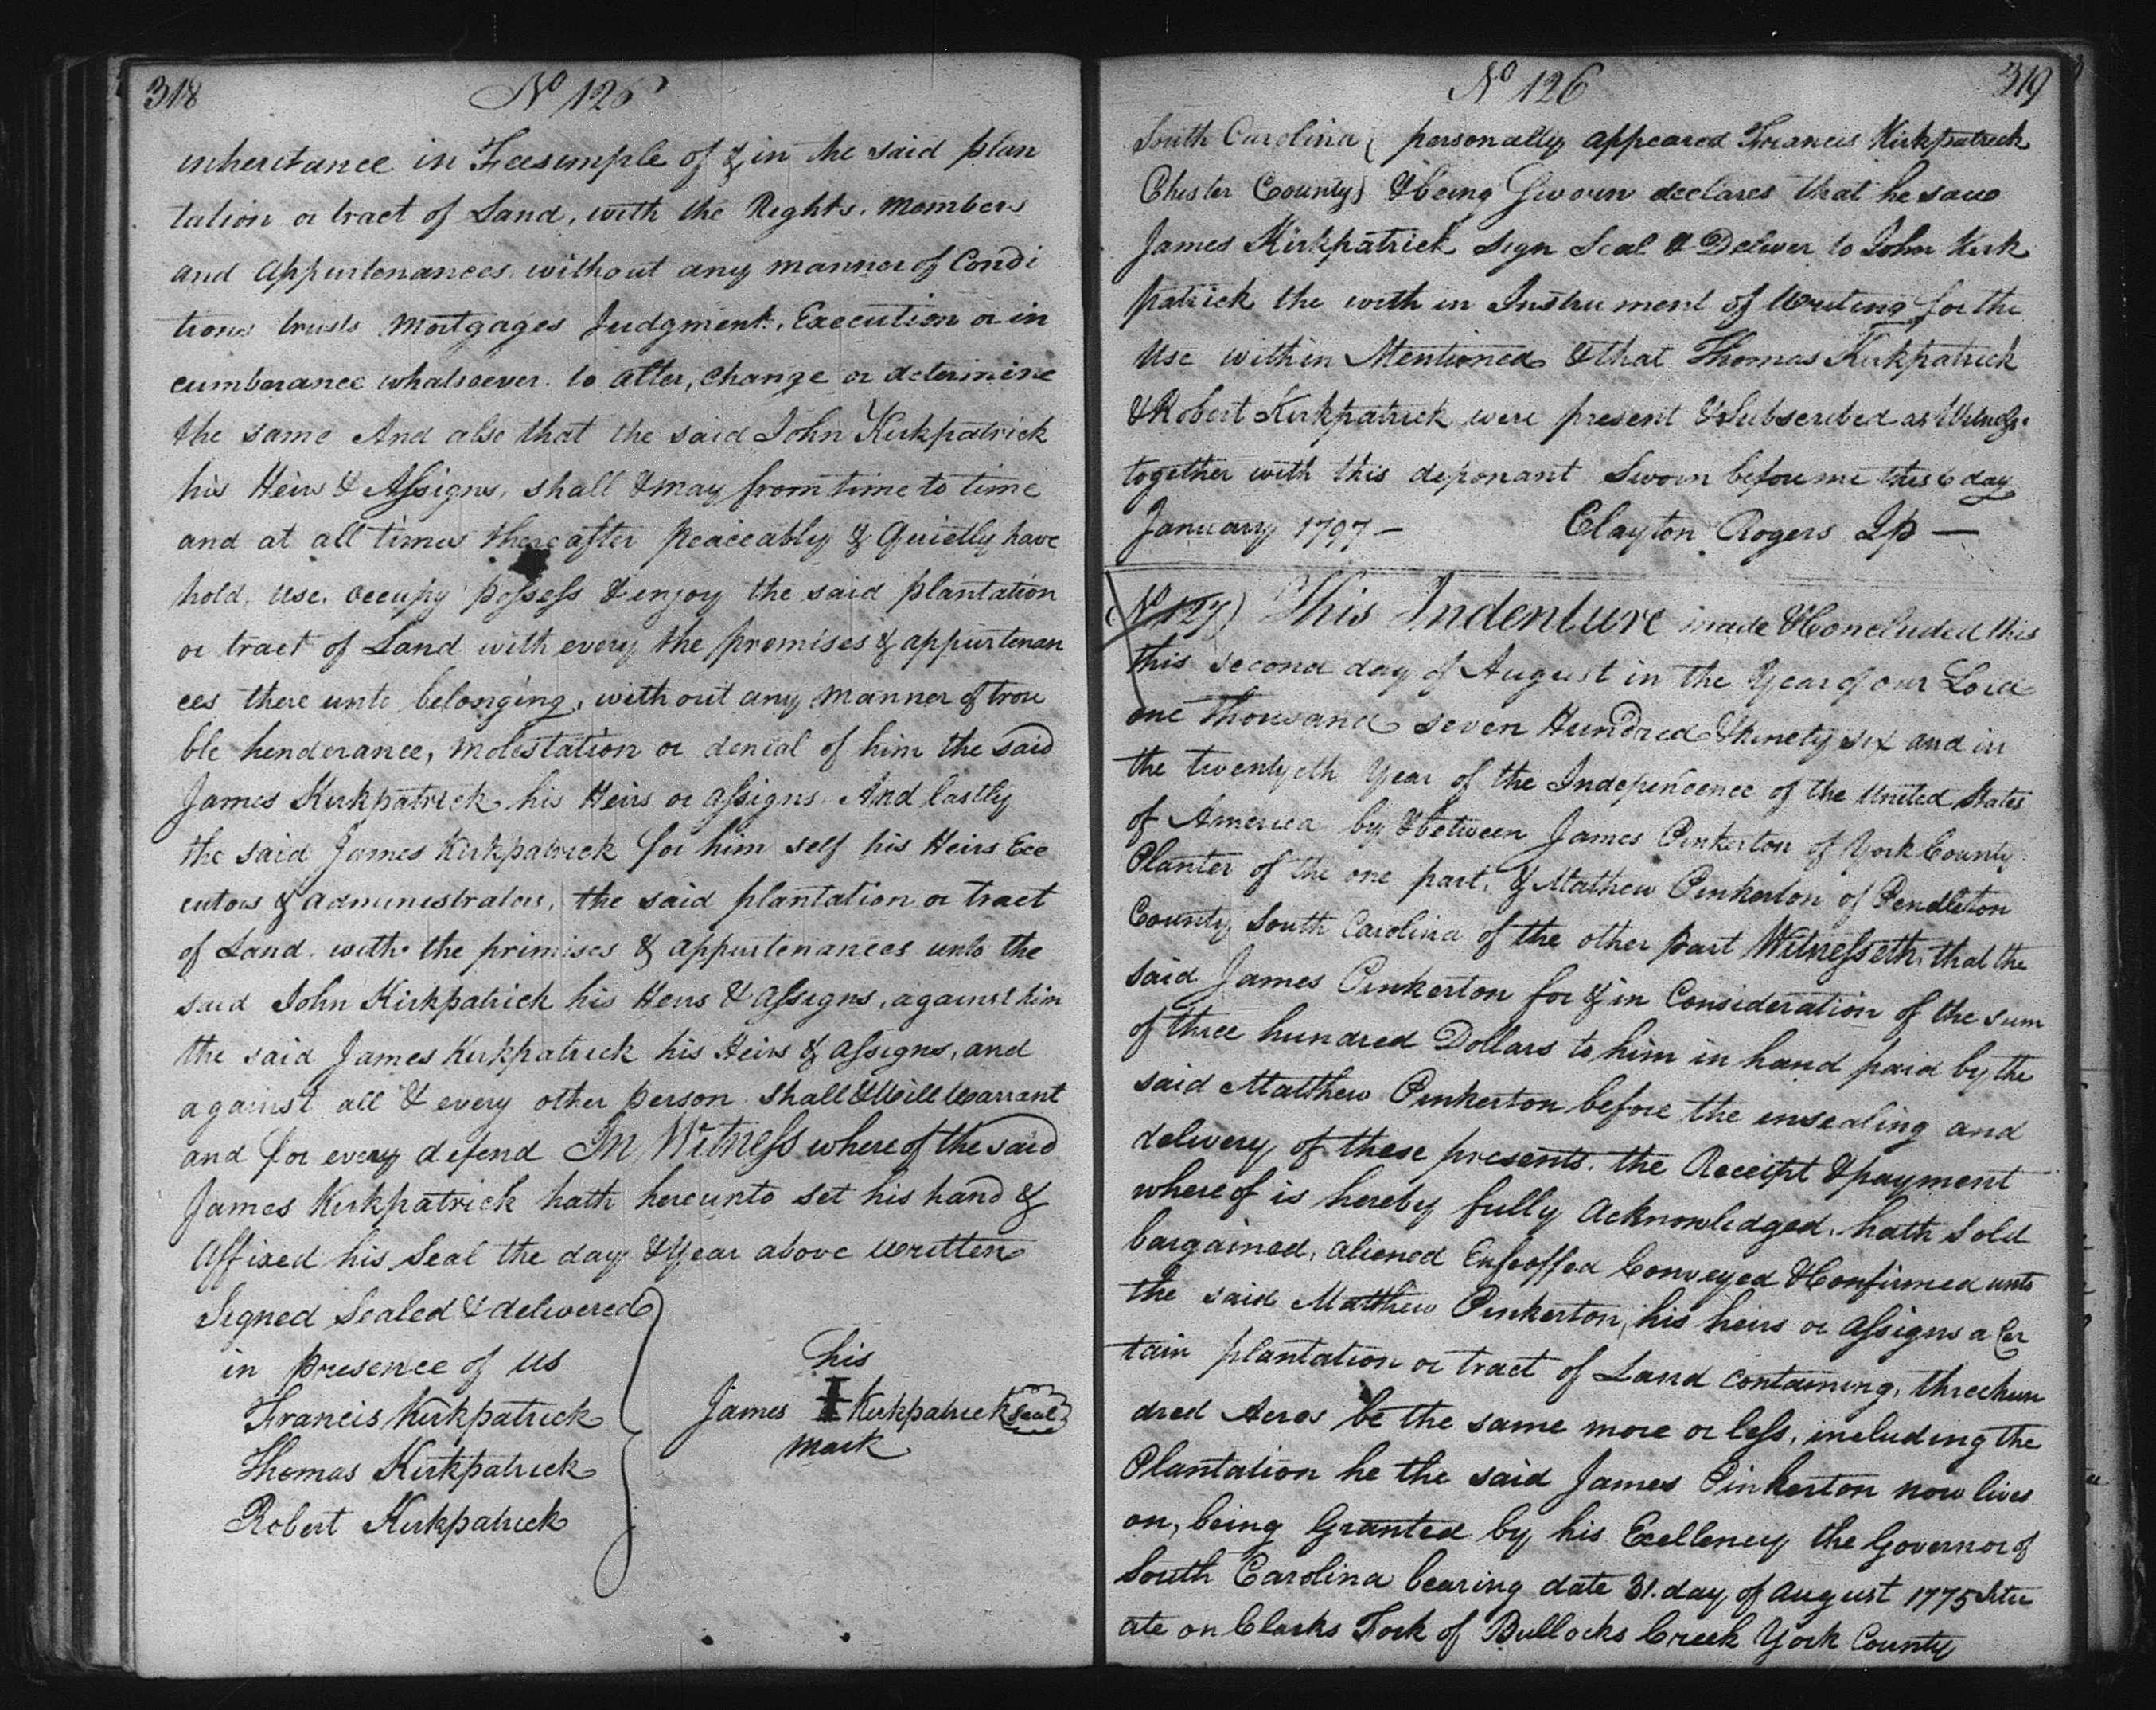 318
No 126
inheritance in Feesimple of & in the said plan
tation or tract of Land, with the Rights, Members
and Appurtenances without any manner of Condi
tions trusts Mortgages Judgment, Execution or in
cumberance whatsoever to alter, change or determine
the same And also that the said John Kirkpatrick
his Heirs & Assigns, shall & may from time to time
and at all times thereafter peaceably & Quietly have
hold, use, occupy possess & enjoy the said plantation
or tract of Land with every the premises & appurtenan
ces there unto belonging, without any manner of trou
ble henderance, Molestation or denial of him the said
James Kirkpatrick his Heirs or assigns. And lastly
the said James Kirkpatrick for him self his Heirs Exe
cutors & administrators, the said plantation or tract
of Land, with the primises & appurtenances unto the
said John Kirkpatrick his Heirs & assigns, against him
the said James Kirkpatrick his Heirs & assigns, and
against all & every other person shall & Will Warrant
and for every defend In Witness where of the said
James Kirkpatrick hath hereunto set his hand &
Affixed his Seal the day & Year above written
Signed Sealed & delivered
in presence of us
Francis Kirkpatrick
Thomas Kirkpatrick
Robert Kirkpatrick
his
James I Kirkpatrick Seal
mark
No 126
319
South Carolina personally appeared Francis Kirkpatrick
Chester County & being Sworn declares that he saw
James Kirkpatrick Sign Seal & Deliver to John Kirk
patrick the with in Instrument of Writing for the
Use within Mentioned & that Thomas Kirkpatrick
& Robert Kirkpatrick were present & Subscribed as
together with this deponant Sworn before me this 6 day
January 1797 - Clayton Rogers Jp -
No 127) This Indenture made & Concluded this
this second day of August in the Year of our Lord
one Thousand seven Hundred & ninety six and in
the twentyeth Year of the Independence of the United States
of America by & between James Pinkerton of York County
Planter of the one part, & Mathew Pinkerton of Pendleton
County South Carolina of the other part Witnesseth, that the
said James Pinkerton for & in Consideration of the sum
of three hundred Dollars to him in hand paid by the
said Matthew Pinkerton before the ensealing and
delivery of these presents, the Receipt & payment
where of is hereby fully Acknowledged, hath sold
bargained, aliened Enfeoffed Conveyed & Confirmed unto
the said Matthew Pinkerton, his heirs or assigns a Cer
tain plantation or tract of Land containing, three hun
dred Acres be the same more or less, including the
Plantation he the said James Pinkerton now lives
on, being Granted by his Exellency the Governor of
South Carolina bearing date 31. day of August 1775 Situ
ate on Clarks Fork of Bullocks Creek York County